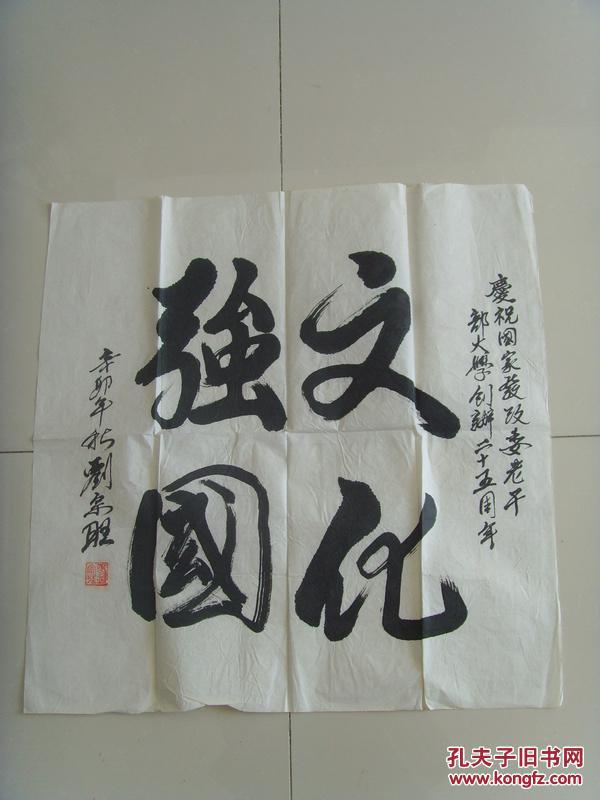 慶祝国家發改委老干
部大學創辦二十五周年
文化
強國
辛卯年秋劉宗胜
孔夫子旧书网
www.kongfz.com